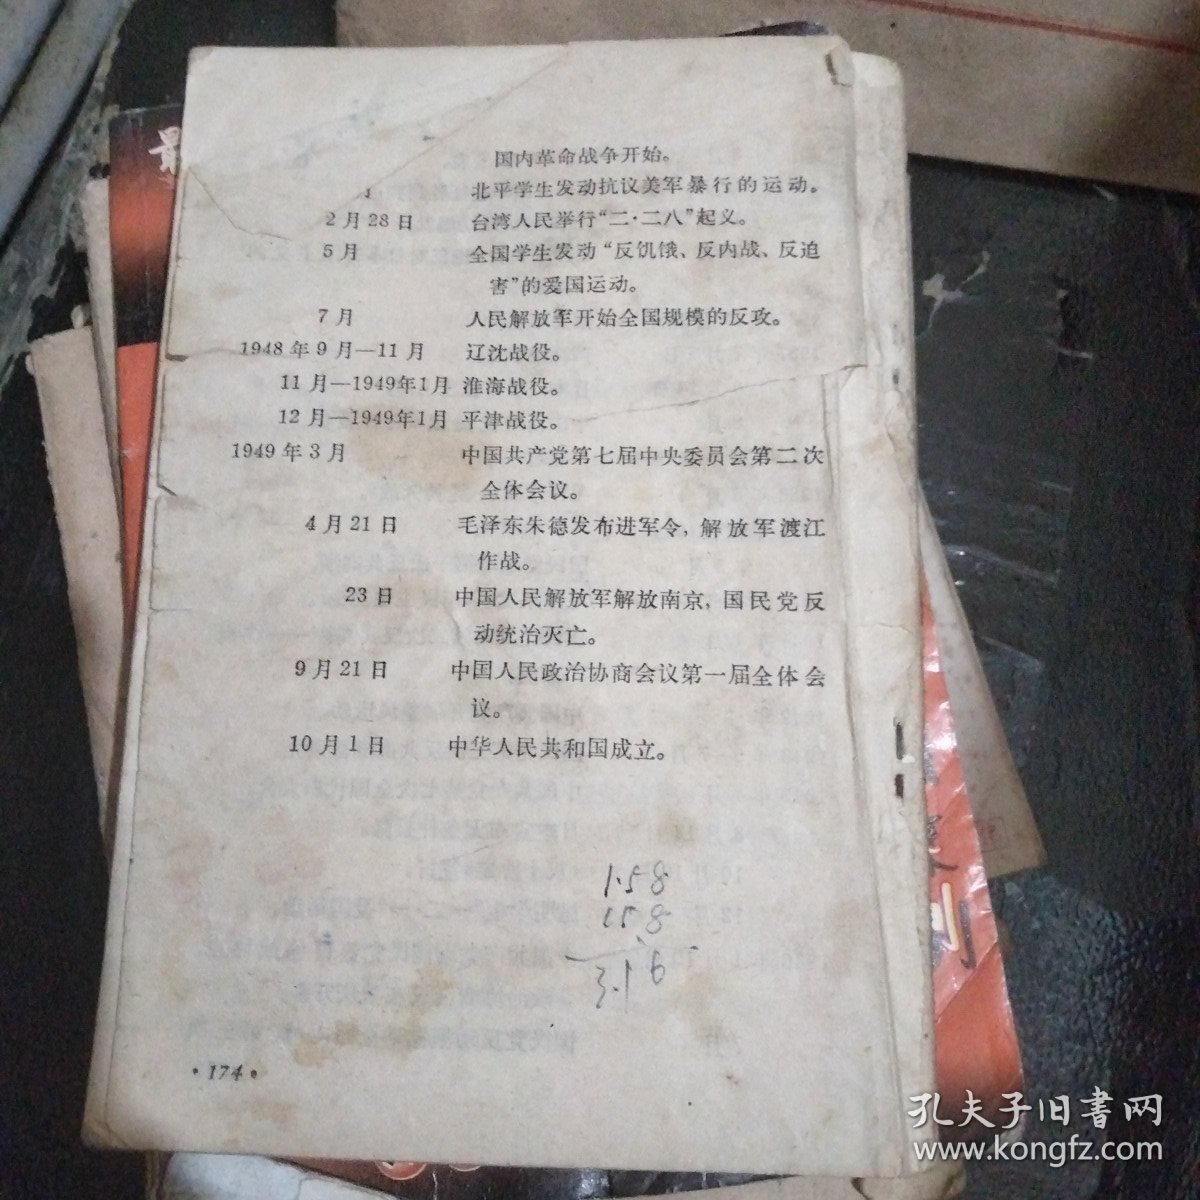 国内革命战争开始。
月 北平学生发动抗议美军暴行的运动。
2月28日 台湾人民举行“二·二八”起义。
5月 全国学生发动“反饥饿、反内战、反迫
害”的爱国运动。
7月 人民解放军开始全国规模的反攻。
1948年9月—11月 辽沈战役。
11月—1949年1月 淮海战役。
12月—1949年1月 平津战役。
1949年3月 中国共产党第七届中央委员会第二次
全体会议。
4月21日 毛泽东朱德发布进军令，解放军渡江
作战。
23日 中国人民解放军解放南京，国民党反
动统治灭亡。
9月21日 中国人民政治协商会议第一届全体会
议。
10月1日 中华人民共和国成立。
1.58
158
3.16
·174·
孔夫子旧书网
www.kongfz.com